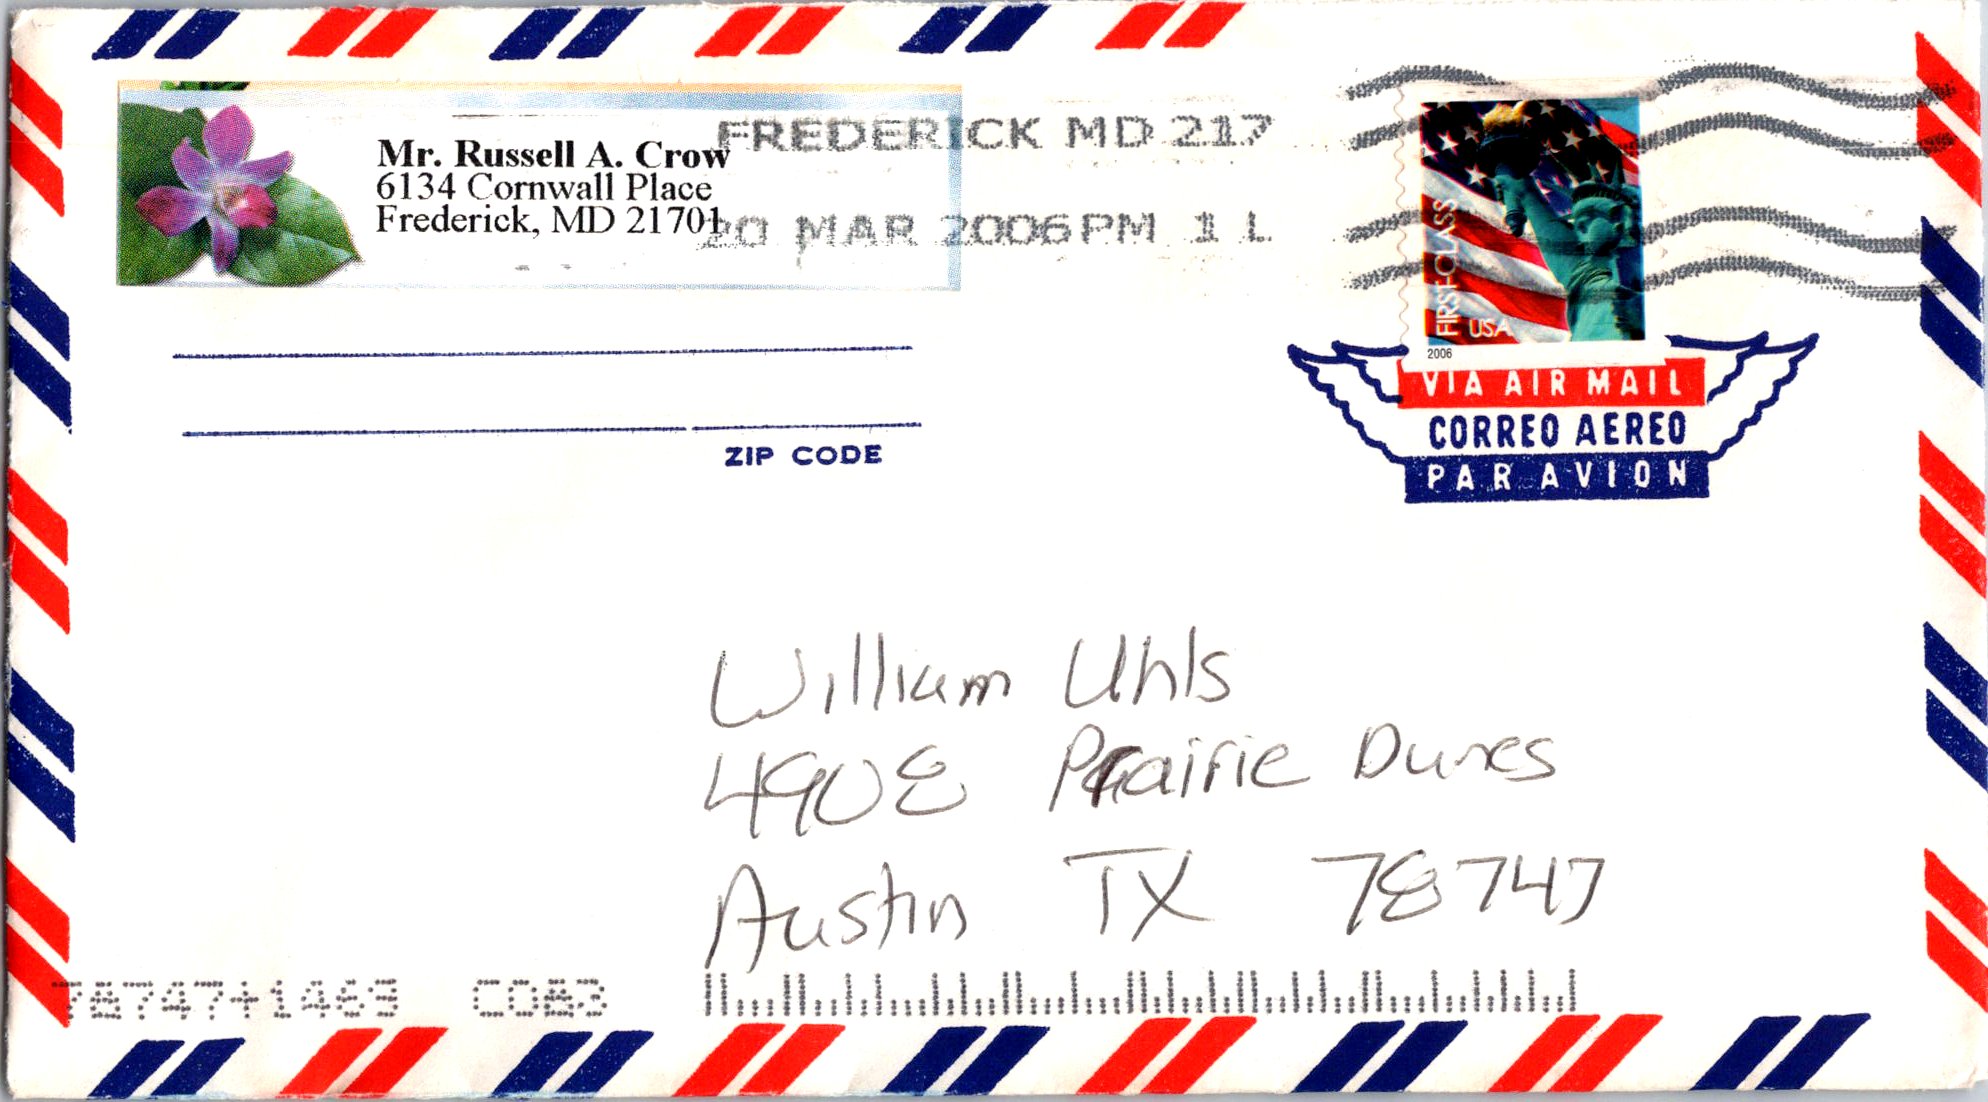 Mr. Russell A. Crow
6134 Cornwall Place
Frederick, MD 21701
FREDERICK MD 217
20 MAR 2006 PM 1 L
FIRST-CLASS
USA
2006
VIA AIR MAIL
CORREO AEREO
PAR AVION
ZIP CODE
William Uhls
4908 Prairie Dunes
Austin TX 78747